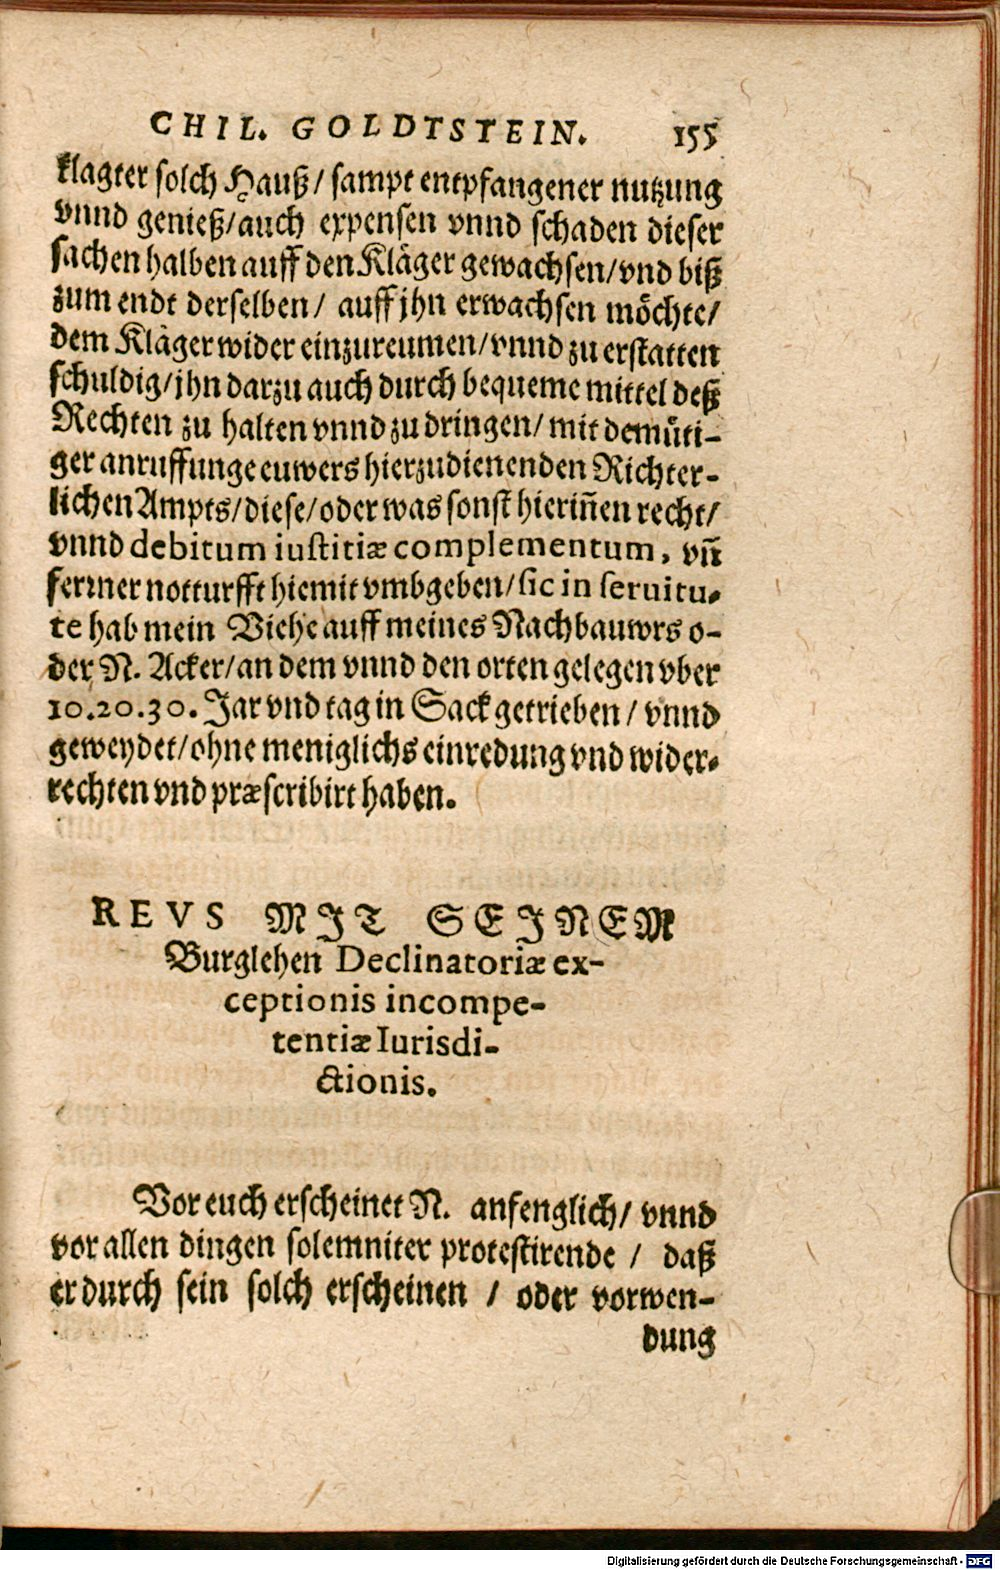 CHIL. GOLDTSTEIN. 155
klagter solch Hauß / sampt entpfangener nutzung
vnnd genieß / auch expensen vnnd schaden dieser
sachen halben auff den Kläger gewachsen / vnd biß
zum endt derselben / auff jhn erwachsen möchte /
dem Kläger wider einzureumen / vnnd zu erstatten
schuldig / jhn darzu auch durch bequeme mittel deß
Rechten zu halten vnnd zu dringen / mit demüti-
ger anruffunge euwers hierzudienenden Richter-
lichen Ampts / diese / oder was sonst hieriñen recht /
vnnd debitum iustitiæ complementum, vñ
ferrner notturfft hiemit vmbgeben / sic in seruitu-
te hab mein Viehe auff meines Nachbauwrs o-
der N. Acker / an dem vnnd den orten gelegen vber
10.20.30. Jar vnd tag in Sack getrieben / vnnd
geweydet / ohne meniglichs einredung vnd wider-
rechten vnd præscribirt haben.
REVS MIT SEINEM
Burglehen Declinatoriæ ex-
ceptionis incompe-
tentiæ Iurisdi-
ctionis.
Vor euch erscheinet N. anfenglich / vnnd
vor allen dingen solemniter protestirende / daß
er durch sein solch erscheinen / oder vorwen-
dung
Digitalisierung gefördert durch die Deutsche Forschungsgemeinschaft - DFG